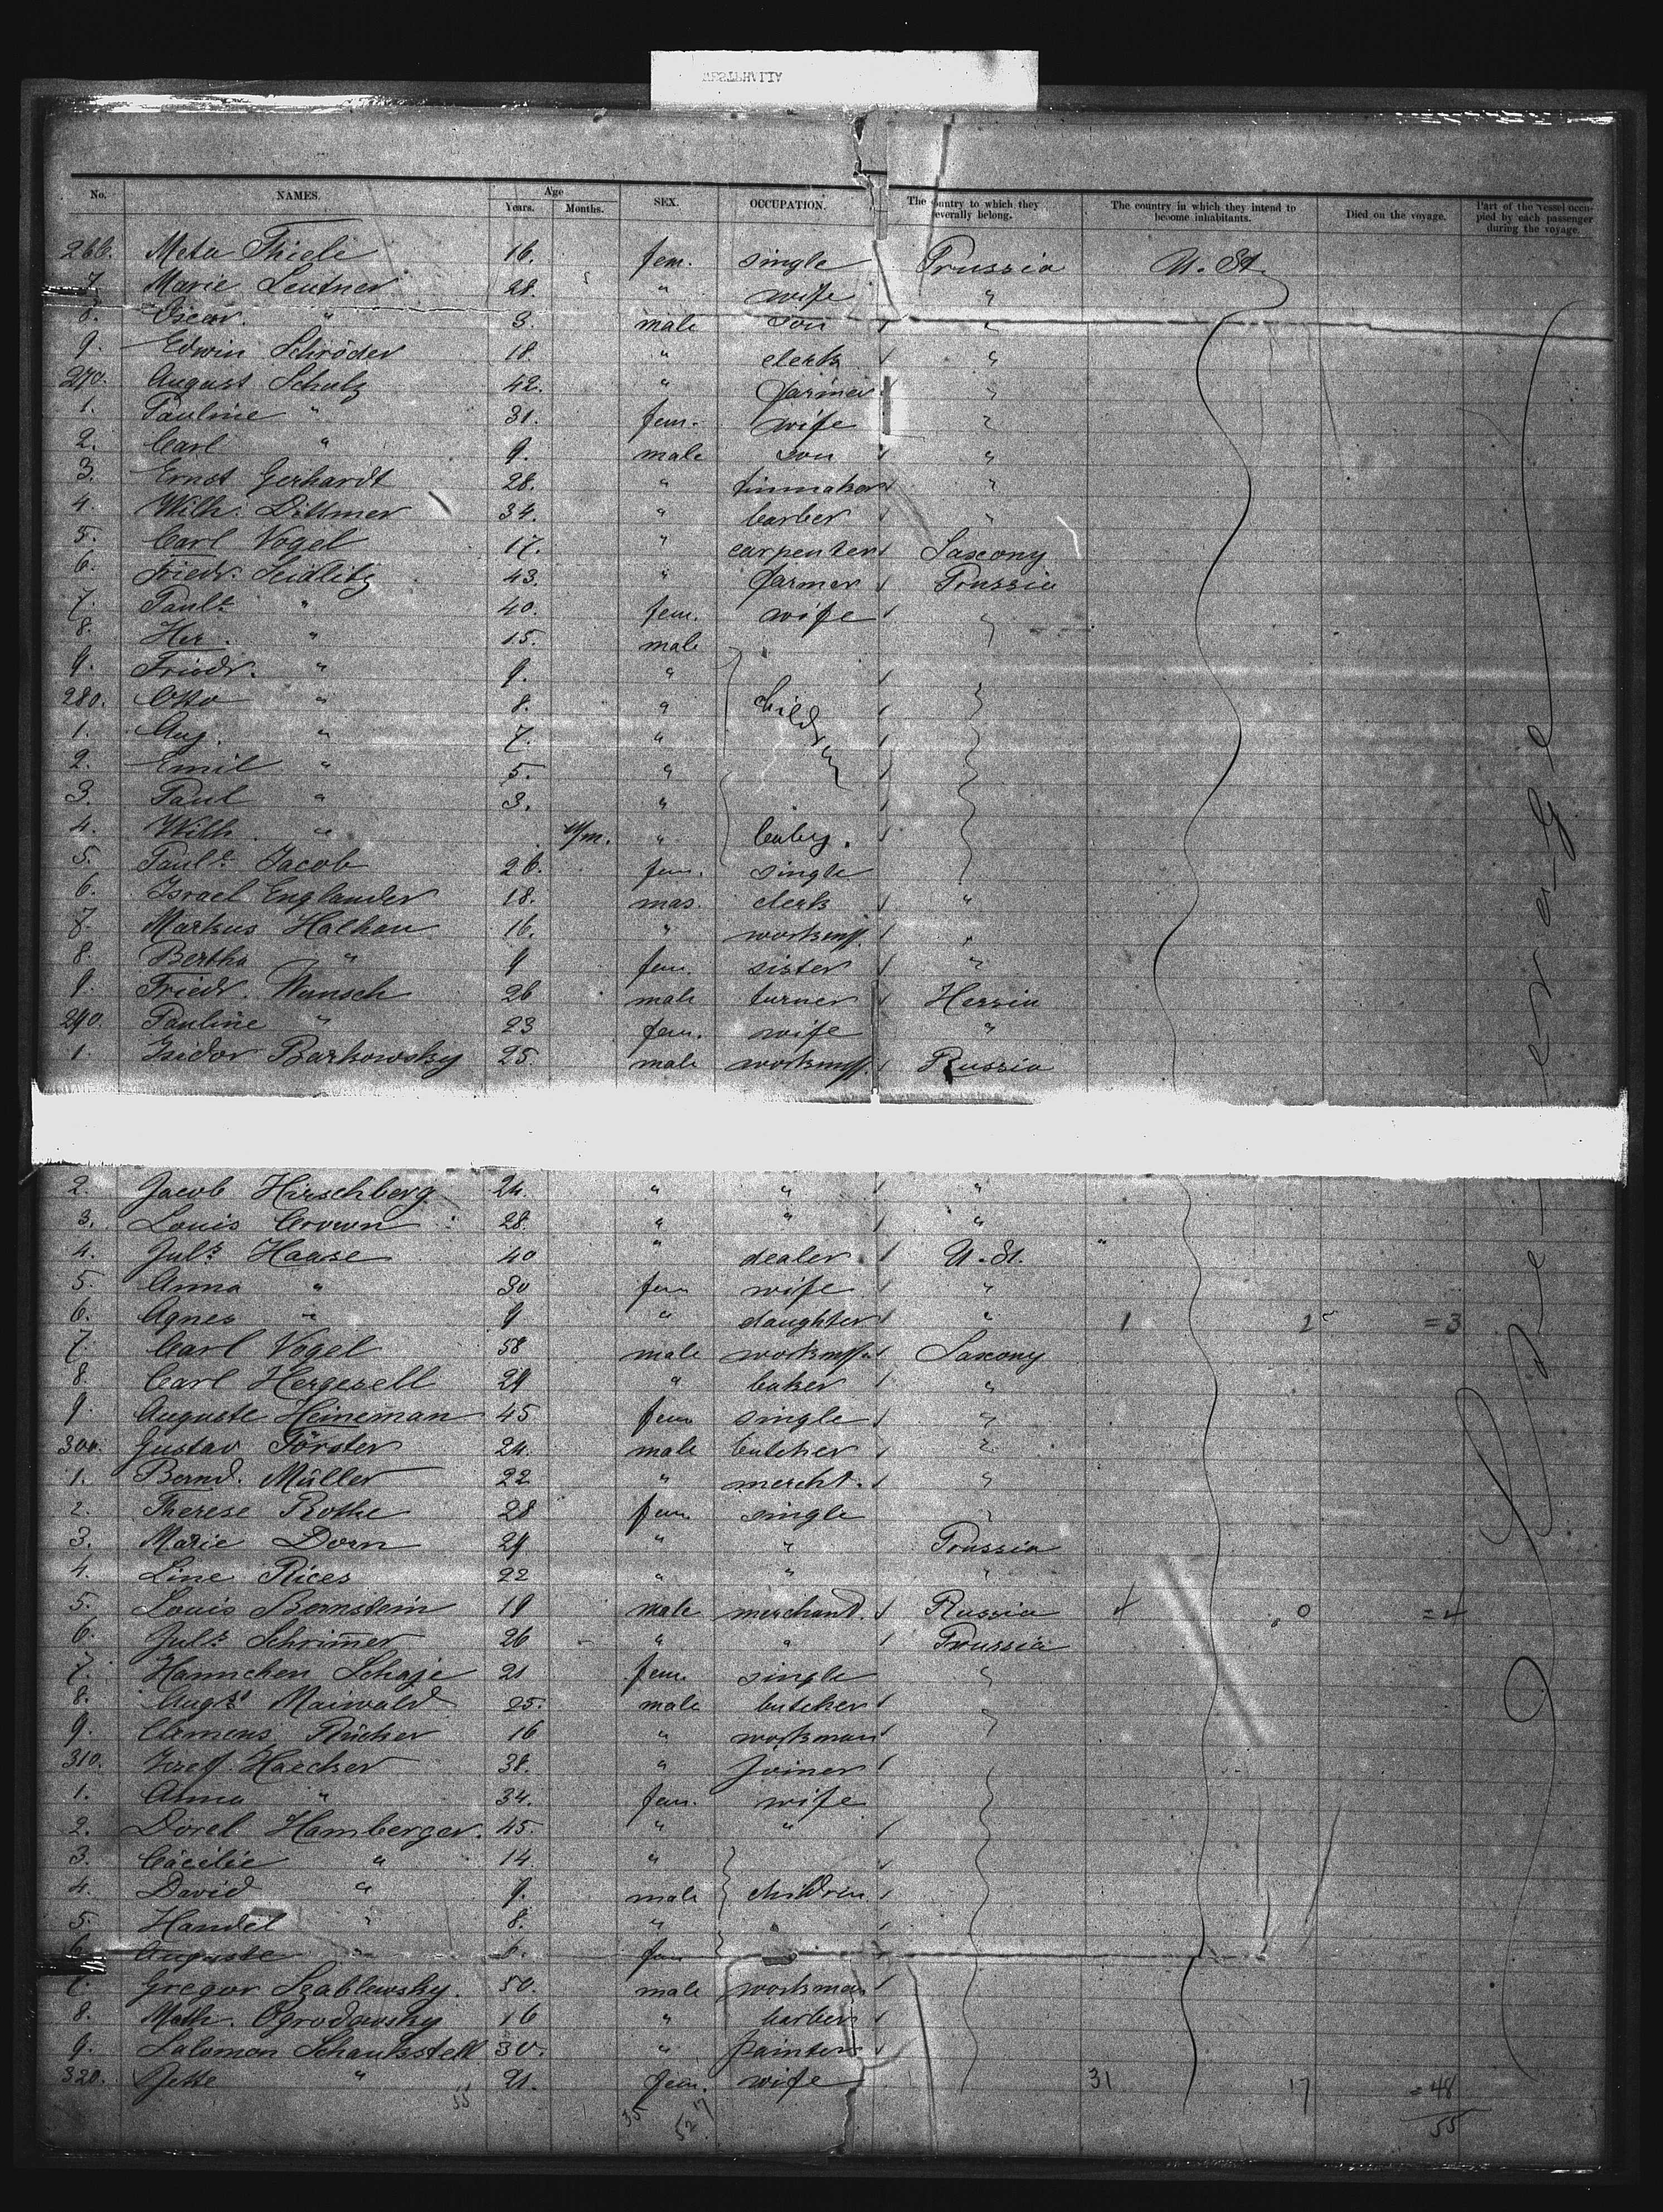 No. NAMES. Age Years. Months. SEX. OCCUPATION. The country to which they severally belong. The country in which they intend to become inhabitants. Died on the voyage. Part of the vessel occupied by each passenger during the voyage.
266. Meta Thiele 16. fem. single Prussia U. St.
7. Marie Leutner 28. " wife "
8. Oscar " 3. male son "
9. Edwin Schröder 18. " clerk "
270. August Schulz 42. " farmer "
1. Pauline " 31. fem. wife "
2. Carl " 9. male son "
3. Ernst Gerhardt 28. " tinmaker "
4. Wilh. Dittmer 34. " barber "
5. Carl Vogel 17. " carpenter Saxony
6. Friedr. Seidlitz 43. " farmer Prussia
7. Paule " 40. fem. wife "
8. Her. " 15. male
9. Friedr. " 9. "
280. Otto " 8. " children
1. Aug. " 7. "
2. Emil " 5. "
3. Paul " 3. "
4. Wilh. " " baby.
5. Paule Jacob 26. fem. single
6. Israel Englander 18. mas. clerk "
7. Markus Halhau 16. " workm. "
8. Bertha " 9 fem. sister "
9. Friedr. Wunsch 26 male turner Hessia
290. Pauline " 23 fem. wife "
1. Isidor Barkowsky 25. male workm. Russia
2. Jacob Hirschberg 24. " " "
3. Louis Crown 28. " " "
4. Juls Haase 40 " dealer U. St. "
5. Anna " 30 fem wife "
6. Agnes " 9 " daughter " 1 2 =3
7. Carl Vogel 58 male workm. Saxony
8. Carl Hergesell 29 " baker "
9. Auguste Heineman 45 fem single "
300. Gustav Förster 24. male butcher "
1. Bernd. Müller 22 " mercht. "
2. Therese Rothe 28 fem single "
3. Marie Dorn 29 " " Prussia
4. Line Rices 22 " " "
5. Louis Bernstein 19 male merchand. Russia 4 0 =4
6. Juls Schrimer 26 " " Prussia
7. Hannchen Schaje 21 fem. single "
8. Augst Maiwald 25. male butcher
9. Clemens Rücker 16 " workman
310. Josef Haecker 38. " joiner
1. Anna " 34. fem. wife
2. Dorel Hamberger. 45. " "
3. Cäcilie " 14. "
4. David " 9. male children
5. Handel " 8. "
6. Auguste " 6. fem
7. Gregor Scablewsky. 50. male workman
8. Math. Ogrodowsky 16 " barber
9. Salomon Schaukstell 30. " painter
320. Jette " 21. fem. wife 31 17 =48
55 35 55